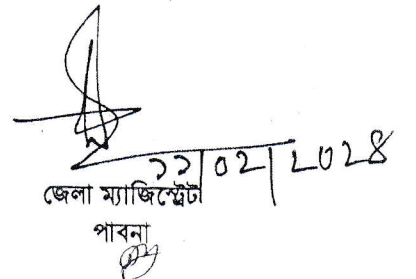 ১১|০২|২০২৪
জেলা ম্যাজিস্ট্রেট
পাবনা